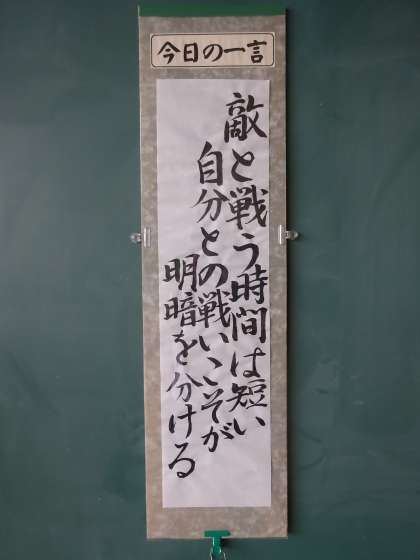 今日の一言
敵と戦う時間は短い
自分との戦いこそが
明暗を分ける